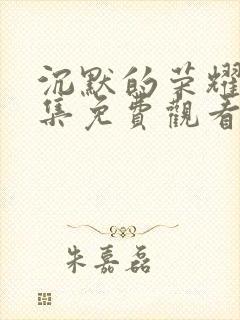 沉默的荣耀
集免費觀看
朱嘉磊